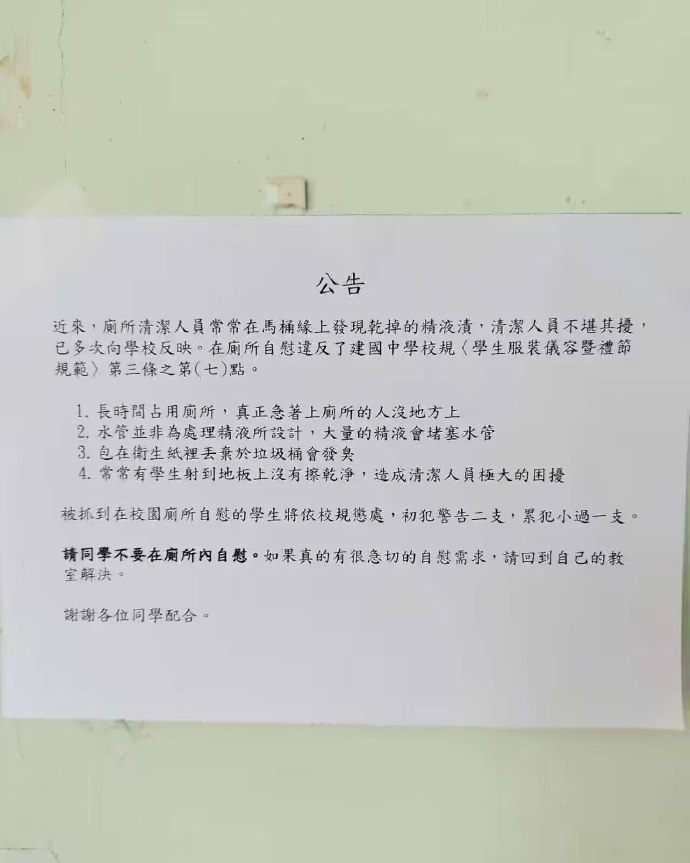 公告
近來，廁所清潔人員常常在馬桶緣上發現乾掉的精液漬，清潔人員不堪其擾，
已多次向學校反映。在廁所自慰違反了建國中學校規〈學生服裝儀容暨禮節
規範〉第三條之第(七)點。
1. 長時間占用廁所，真正急著上廁所的人沒地方上
2. 水管並非為處理精液所設計，大量的精液會堵塞水管
3. 包在衛生紙裡丟棄於垃圾桶會發臭
4. 常常有學生射到地板上沒有擦乾淨，造成清潔人員極大的困擾
被抓到在校園廁所自慰的學生將依校規懲處，初犯警告二支，累犯小過一支。
請同學不要在廁所內自慰。如果真的有很急切的自慰需求，請回到自己的教
室解決。
謝謝各位同學配合。